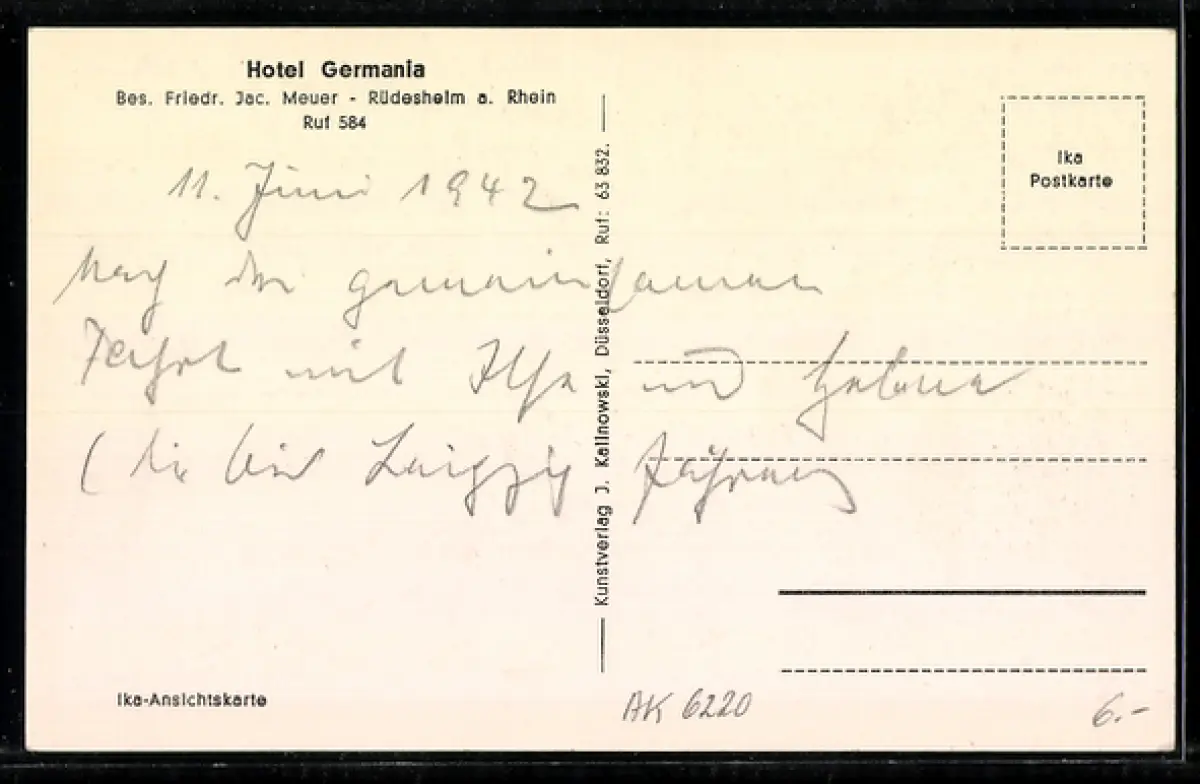 Hotel Germania
Bes. Friedr. Jac. Meuer - Rüdesheim a. Rhein
Ruf 584
11. Juni 1942
Nach der gemeinsamen
Fahrt mit Ilse und
(die bis Leipzig fahren)
Kunstverlag J. Kallnowski, Düsseldorf, Ruf: 63 832.
Ika
Postkarte
Ika-Ansichtskarte
AK 6220
6.-